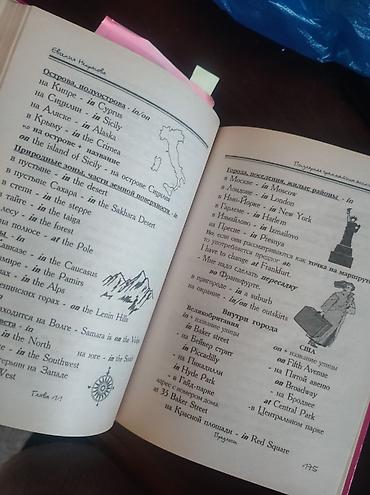 Евгения Некрасова
Острова, полуострова - in/on
на Кипре - in Cyprus
на Сицилии - in Sicily
на Аляске - in Alaska
в Крыму - in the Crimea
на острове + название
on the island of Sicily - на острове Сицилия
Природные зоны, части земной поверхности - in
в пустыне - in the desert
в пустыне Сахара - in the Sakhara Desert
в степи - in the steppe
в тайге - in the taiga
лесу - in the forest
на полюсе - at the Pole
Кавказе - in the Caucasus
Памире - in the Pamirs
in the Alps
Ленинских горах - on the Lenin Hills
находится на Волге - Samara is on the Volga
света - in
in the North
на юге - in the South
in the Southwest
на Западе
West
Глава 11
Города, поселения, жилые районы - in
в Москве - in Moscow
в Лондоне - in London
в Нью-Йорке - in New York
в Гарлеме - in Harlem
в Измайлово - in Izmailovo
на Пресне - in Presnya
Но: если они рассматриваются как точка на маршруте,
то употребляется предлог at
I have to change at Frankfurt.
- Мне надо сделать пересадку
во Франкфурте.
в пригороде - in a suburb
на окраине - in/on the outskirts
Внутри города
Великобритания
in + название улицы
in Baker street
- на Бейкер стрит
in Piccadilly
- на Пикадилли
in Hyde Park
- в Гайд-парке
адрес с номером дома
at 35 Baker Street
США
on + название улицы
on Fifth Avenue
- на Пятой авеню
on Broadway
- на Бродвее
at Central Park
- в Центральном парке
на Красной площади - in Red Square
Предлоги
175